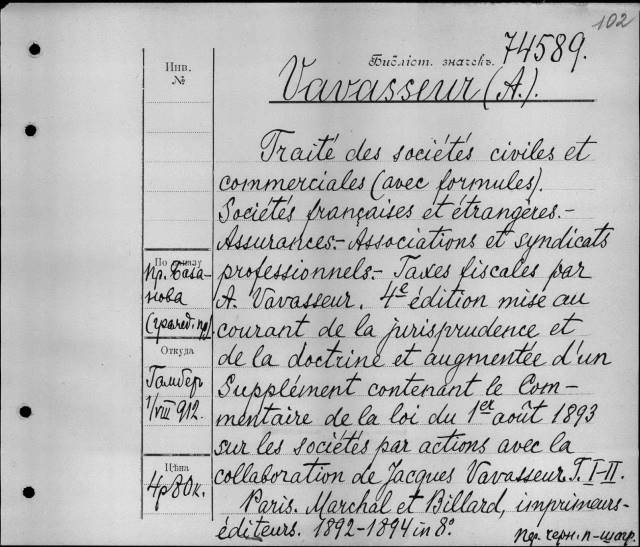 102
Библіот. значекъ. 74589.
Инв.
№
Vavasseur (A.).
Traité des sociétés civiles et
commerciales (avec formules).
Sociétés françaises et étrangères.-
Assurances.- Associations et syndicats
professionnels.- Taxes fiscales par
A. Vavasseur. 4e édition mise au
courant de la jurisprudence et
de la doctrine et augmentée d'un
Supplément contenant le Com-
mentaire de la loi du 1er août 1893
sur les sociétés par actions avec la
collaboration de Jacques Vavasseur. T. I-II.
Paris. Marchal et Billard, imprimeurs-
éditeurs. 1892-1894 in 8º.
По
пр. База-
нова
Откуда
Гамберъ
1/VIII 912.
Цѣна
4р80к.
пер. черн. п-шагр.